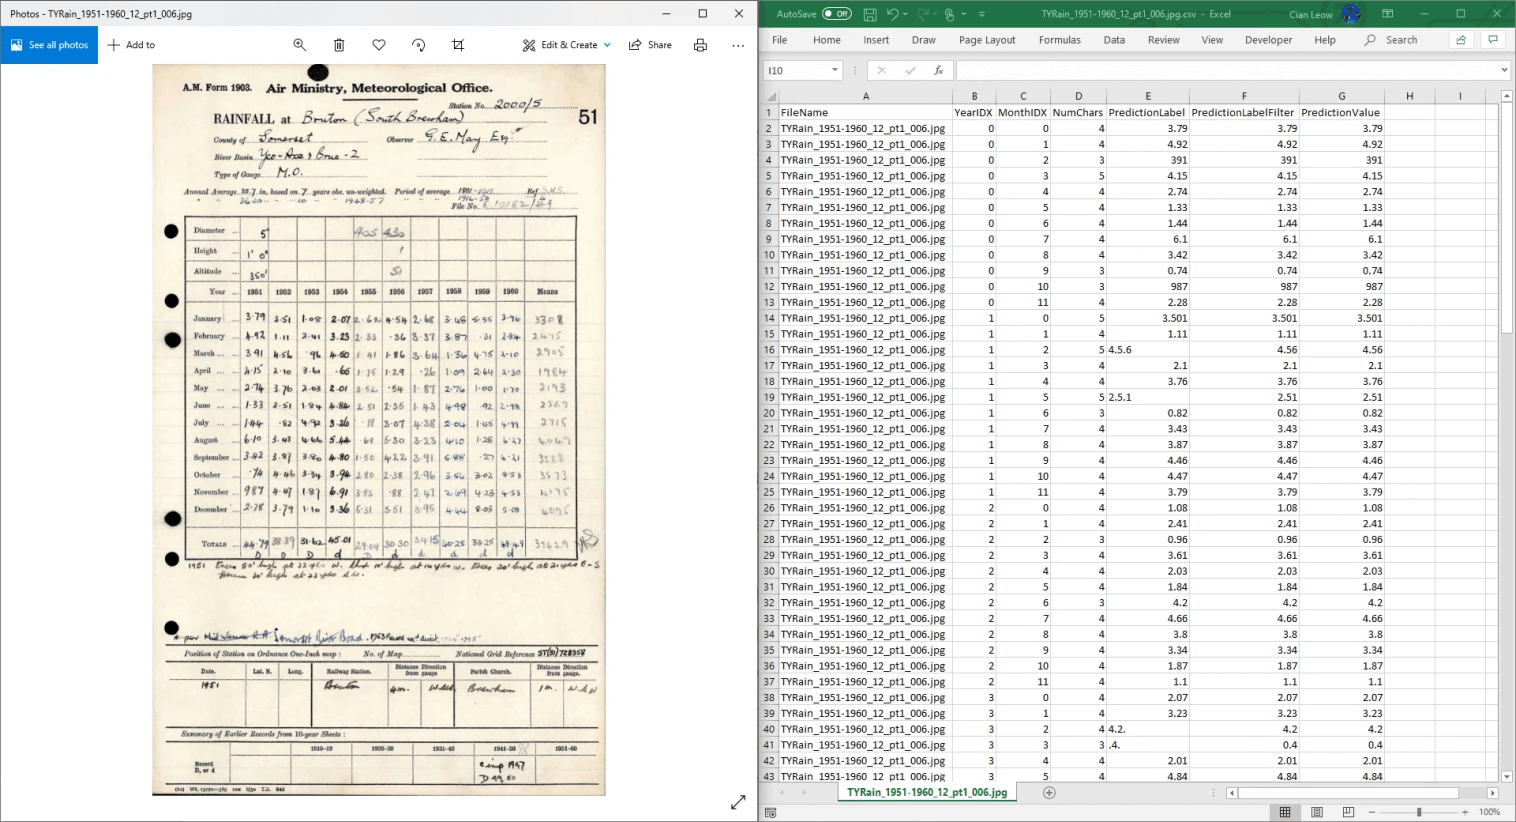 Photos - TYRain_1951-1960_12_pt1_006.jpg
See all photos Add to Edit & Create Share
A.M. Form 1903. Air Ministry, Meteorological Office.
Station No. 2000/5
RAINFALL at Bruton (South Brewham) 51
County of Somerset Observer G.E. May Esq
River Basin Yeo-Axe & Brue - 2
Type of Gauge M.O.
Annual Average 35.7 in. based on 7 years obs. un-weighted. Period of average 1881-1915 Ref.
File No.
Diameter ... 5"
Height ... 1' 0"
Altitude ... 350'
Year ... 1951 1952 1953 1954 1955 1956 1957 1958 1959 1960 Means
January ... 3.79 3.51 1.08 2.07 2.62 4.54 2.68 3.48 5.35 3.96 3308
February ... 4.92 1.11 2.41 3.23 2.33 .36 3.37 3.87 .31 2.84 2475
March ... 3.91 4.56 .96 4.20 1.41 1.86 3.64 1.36 4.75 2.10 2905
April ... 4.15 2.10 3.61 .65 1.75 1.29 .26 1.09 2.64 2.30 1984
May ... 2.74 3.76 2.03 2.01 3.52 .54 1.87 2.76 1.00 1.70 2193
June ... 1.33 2.51 1.84 4.84 2.51 2.35 1.43 4.98 .92 2.98 2569
July ... 1.44 .82 4.92 3.26 .18 3.07 4.38 2.04 1.45 4.99 2715
August ... 6.10 3.43 4.66 5.44 .68 5.30 3.23 4.10 1.28 6.27
September ... 3.42 3.87 3.80 4.80 1.50 4.22 3.91 5.88 .27 4.21
October ... .74 4.46 3.34 3.94 2.80 2.38 2.96 3.56 3.02 8.53 3573
November ... 9.87 4.47 1.87 6.91 3.83 .88 2.47 2.69 4.23 4.53 4175
December ... 2.28 3.79 1.10 3.36 5.31 3.51 3.95 4.44 8.03 5.08 4095
TOTALS ... 44.79 38.39 31.62 45.01 29.04 30.30 34.15 40.25 33.25 49.49 39629
D D D d D d d d d d
Somerset River Board.
Position of Station on Ordnance One-Inch map : No. of Map National Grid Reference ST(31)/728358
Date. Lat. N. Long. Railway Station. Distance Direction from gauge Parish Church. Distance Direction from gauge.
1951 Bruton 4m. Brewham 1m. W.S.W
Summary of Earlier Records from 10-year Sheets :
1910-19 1920-30 1931-40 1941-50 1951-60
Record D, or d
1947
D 49, 50
AutoSave Off TYRain_1951-1960_12_pt1_006.jpg.csv - Excel Cian Leow
File Home Insert Draw Page Layout Formulas Data Review View Developer Help Search
I10 fx
A B C D E F G H I
1 FileName YearIDX MonthIDX NumChars PredictionLabel PredictionLabelFilter PredictionValue
2 TYRain_1951-1960_12_pt1_006.jpg 0 0 4 3.79 3.79 3.79
3 TYRain_1951-1960_12_pt1_006.jpg 0 1 4 4.92 4.92 4.92
4 TYRain_1951-1960_12_pt1_006.jpg 0 2 3 391 391 391
5 TYRain_1951-1960_12_pt1_006.jpg 0 3 5 4.15 4.15 4.15
6 TYRain_1951-1960_12_pt1_006.jpg 0 4 4 2.74 2.74 2.74
7 TYRain_1951-1960_12_pt1_006.jpg 0 5 4 1.33 1.33 1.33
8 TYRain_1951-1960_12_pt1_006.jpg 0 6 4 1.44 1.44 1.44
9 TYRain_1951-1960_12_pt1_006.jpg 0 7 4 6.1 6.1 6.1
10 TYRain_1951-1960_12_pt1_006.jpg 0 8 4 3.42 3.42 3.42
11 TYRain_1951-1960_12_pt1_006.jpg 0 9 3 0.74 0.74 0.74
12 TYRain_1951-1960_12_pt1_006.jpg 0 10 3 987 987 987
13 TYRain_1951-1960_12_pt1_006.jpg 0 11 4 2.28 2.28 2.28
14 TYRain_1951-1960_12_pt1_006.jpg 1 0 5 3.501 3.501 3.501
15 TYRain_1951-1960_12_pt1_006.jpg 1 1 4 1.11 1.11 1.11
16 TYRain_1951-1960_12_pt1_006.jpg 1 2 5 4.5.6 4.56 4.56
17 TYRain_1951-1960_12_pt1_006.jpg 1 3 4 2.1 2.1 2.1
18 TYRain_1951-1960_12_pt1_006.jpg 1 4 4 3.76 3.76 3.76
19 TYRain_1951-1960_12_pt1_006.jpg 1 5 5 2.5.1 2.51 2.51
20 TYRain_1951-1960_12_pt1_006.jpg 1 6 3 0.82 0.82 0.82
21 TYRain_1951-1960_12_pt1_006.jpg 1 7 4 3.43 3.43 3.43
22 TYRain_1951-1960_12_pt1_006.jpg 1 8 4 3.87 3.87 3.87
23 TYRain_1951-1960_12_pt1_006.jpg 1 9 4 4.46 4.46 4.46
24 TYRain_1951-1960_12_pt1_006.jpg 1 10 4 4.47 4.47 4.47
25 TYRain_1951-1960_12_pt1_006.jpg 1 11 4 3.79 3.79 3.79
26 TYRain_1951-1960_12_pt1_006.jpg 2 0 4 1.08 1.08 1.08
27 TYRain_1951-1960_12_pt1_006.jpg 2 1 4 2.41 2.41 2.41
28 TYRain_1951-1960_12_pt1_006.jpg 2 2 3 0.96 0.96 0.96
29 TYRain_1951-1960_12_pt1_006.jpg 2 3 4 3.61 3.61 3.61
30 TYRain_1951-1960_12_pt1_006.jpg 2 4 4 2.03 2.03 2.03
31 TYRain_1951-1960_12_pt1_006.jpg 2 5 4 1.84 1.84 1.84
32 TYRain_1951-1960_12_pt1_006.jpg 2 6 3 4.2 4.2 4.2
33 TYRain_1951-1960_12_pt1_006.jpg 2 7 4 4.66 4.66 4.66
34 TYRain_1951-1960_12_pt1_006.jpg 2 8 4 3.8 3.8 3.8
35 TYRain_1951-1960_12_pt1_006.jpg 2 9 4 3.34 3.34 3.34
36 TYRain_1951-1960_12_pt1_006.jpg 2 10 4 1.87 1.87 1.87
37 TYRain_1951-1960_12_pt1_006.jpg 2 11 4 1.1 1.1 1.1
38 TYRain_1951-1960_12_pt1_006.jpg 3 0 4 2.07 2.07 2.07
39 TYRain_1951-1960_12_pt1_006.jpg 3 1 4 3.23 3.23 3.23
40 TYRain_1951-1960_12_pt1_006.jpg 3 2 4 4.2. 4.2 4.2
41 TYRain_1951-1960_12_pt1_006.jpg 3 3 3 .4. 0.4 0.4
42 TYRain_1951-1960_12_pt1_006.jpg 3 4 4 2.01 2.01 2.01
43 TYRain_1951-1960_12_pt1_006.jpg 3 5 4 4.84 4.84 4.84
TYRain_1951-1960_12_pt1_006.jpg
100%